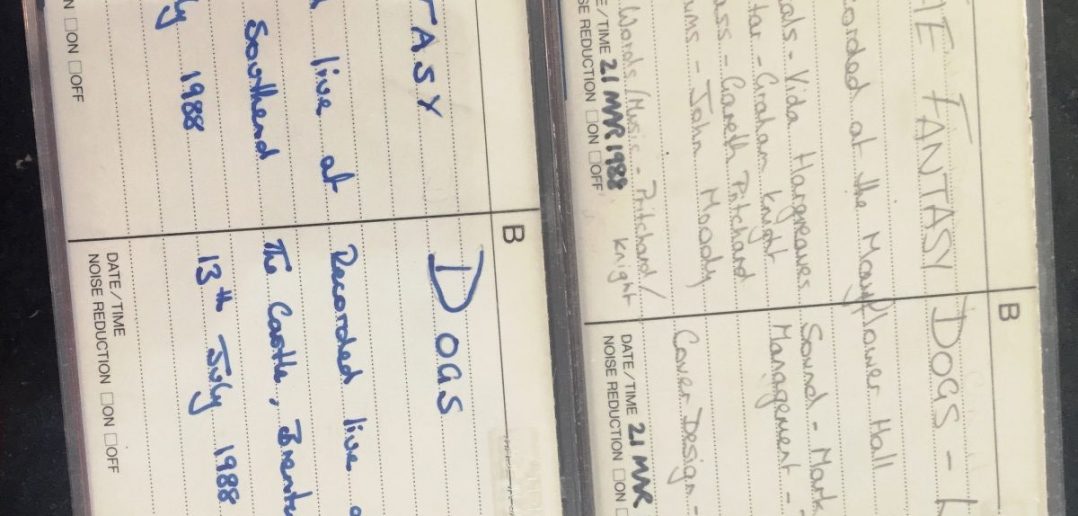 B
HE FANTASY DOGS - L
corded at the Mayflower Hall
als - Vida Hargreaves Sound - Mark
tar - Graham Knight Management -
ass - Gareth Pritchard
ums - John Moody Cover Design -
Words/Music - Pritchard/
Knight
E/TIME 21 MAR 1988 DATE/TIME 21 MAR
SE REDUCTION □ON □OFF NOISE REDUCTION □ON
B
TASY DOGS
live at Recorded live
Southend The Castle, Brentw
y 1988 13th July 1988
DATE/TIME
N □ON □OFF NOISE REDUCTION □ON □OFF